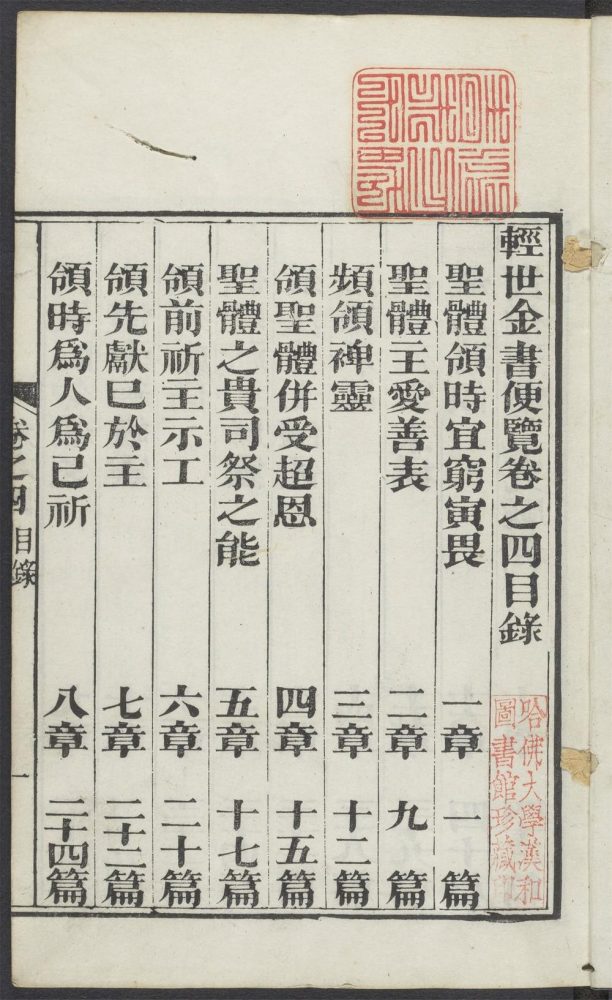 輕世金書便覽卷之四目錄
聖體領時宜窮寅畏 一章 一篇
聖體主愛善表 二章 九篇
頻領裨靈 三章 十二篇
領聖體併受超恩 四章 十五篇
聖體之貴司祭之能 五章 十七篇
領前祈主示工 六章 二十篇
領先獻己於主 七章 二十二篇
領時爲人爲己祈 八章 二十四篇
卷之四 目錄 一
哈佛大學漢和
圖書館珍藏印